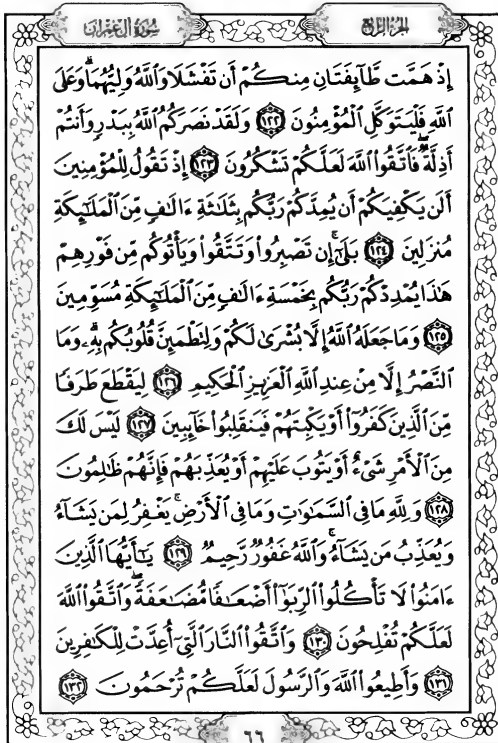 سُورَةُ آلِ عِمْرَان
الجزء الرابع
إِذْ هَمَّت طَّآئِفَتَانِ مِنكُمْ أَن تَفْشَلَا وَٱللَّهُ وَلِيُّهُمَا ۗ وَعَلَى
ٱللَّهِ فَلْيَتَوَكَّلِ ٱلْمُؤْمِنُونَ ١٢٢ وَلَقَدْ نَصَرَكُمُ ٱللَّهُ بِبَدْرٍ وَأَنتُمْ
أَذِلَّةٌ ۖ فَٱتَّقُوا۟ ٱللَّهَ لَعَلَّكُمْ تَشْكُرُونَ ١٢٣ إِذْ تَقُولُ لِلْمُؤْمِنِينَ
أَلَن يَكْفِيَكُمْ أَن يُمِدَّكُمْ رَبُّكُم بِثَلَٰثَةِ ءَالَٰفٍ مِّنَ ٱلْمَلَٰٓئِكَةِ
مُنزَلِينَ ١٢٤ بَلَىٰٓ ۚ إِن تَصْبِرُوا۟ وَتَتَّقُوا۟ وَيَأْتُوكُم مِّن فَوْرِهِمْ
هَٰذَا يُمْدِدْكُمْ رَبُّكُم بِخَمْسَةِ ءَالَٰفٍ مِّنَ ٱلْمَلَٰٓئِكَةِ مُسَوِّمِينَ
١٢٥ وَمَا جَعَلَهُ ٱللَّهُ إِلَّا بُشْرَىٰ لَكُمْ وَلِتَطْمَئِنَّ قُلُوبُكُم بِهِۦ ۗ وَمَا
ٱلنَّصْرُ إِلَّا مِنْ عِندِ ٱللَّهِ ٱلْعَزِيزِ ٱلْحَكِيمِ ١٢٦ لِيَقْطَعَ طَرَفًا
مِّنَ ٱلَّذِينَ كَفَرُوٓا۟ أَوْ يَكْبِتَهُمْ فَيَنقَلِبُوا۟ خَآئِبِينَ ١٢٧ لَيْسَ لَكَ
مِنَ ٱلْأَمْرِ شَىْءٌ أَوْ يَتُوبَ عَلَيْهِمْ أَوْ يُعَذِّبَهُمْ فَإِنَّهُمْ ظَٰلِمُونَ
١٢٨ وَلِلَّهِ مَا فِى ٱلسَّمَٰوَٰتِ وَمَا فِى ٱلْأَرْضِ ۚ يَغْفِرُ لِمَن يَشَآءُ
وَيُعَذِّبُ مَن يَشَآءُ ۚ وَٱللَّهُ غَفُورٌ رَّحِيمٌ ١٢٩ يَٰٓأَيُّهَا ٱلَّذِينَ
ءَامَنُوا۟ لَا تَأْكُلُوا۟ ٱلرِّبَوٰٓا۟ أَضْعَٰفًا مُّضَٰعَفَةً ۖ وَٱتَّقُوا۟ ٱللَّهَ
لَعَلَّكُمْ تُفْلِحُونَ ١٣٠ وَٱتَّقُوا۟ ٱلنَّارَ ٱلَّتِىٓ أُعِدَّتْ لِلْكَٰفِرِينَ
١٣١ وَأَطِيعُوا۟ ٱللَّهَ وَٱلرَّسُولَ لَعَلَّكُمْ تُرْحَمُونَ ١٣٢
٦٦